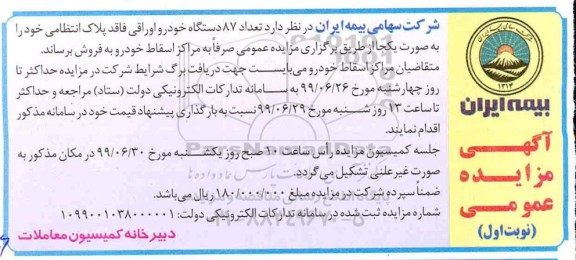 شرکت سهامی بیمه ایران در نظر دارد تعداد ۸۷ دستگاه خودرو اوراقی فاقد پلاک انتظامی خود را
به صورت یکجا از طریق برگزاری مزایده عمومی صرفاً به مراکز اسقاط خودرو به فروش برساند.
متقاضیان مراکز اسقاط خودرو می‌بایست جهت دریافت برگ شرایط شرکت در مزایده حداکثر تا
روز چهارشنبه مورخ ۹۹/۰۶/۲۶ به سامانه تدارکات الکترونیکی دولت (ستاد) مراجعه و حداکثر
تا ساعت ۱۳ روز شنبه مورخ ۹۹/۰۶/۲۹ نسبت به بارگذاری پیشنهاد قیمت خود در سامانه مذکور
اقدام نمایند.
جلسه کمیسیون مزایده رأس ساعت ۱۰ صبح روز یکشنبه مورخ ۹۹/۰۶/۳۰ در مکان مذکور به
صورت غیرعلنی تشکیل می‌گردد.
ضمناً سپرده شرکت در مزایده مبلغ ۱۸۰/۰۰۰/۰۰۰ ریال می‌باشد.
شماره مزایده ثبت شده در سامانه تدارکات الکترونیکی دولت: ۱۰۹۹۰۰۱۰۳۸۰۰۰۰۰۱
دبیرخانه کمیسیون معاملات
۱۳۱۴
بیمه ایران
آگهی
مزایده
عمومی
(نوبت اول)
ParsNamadData